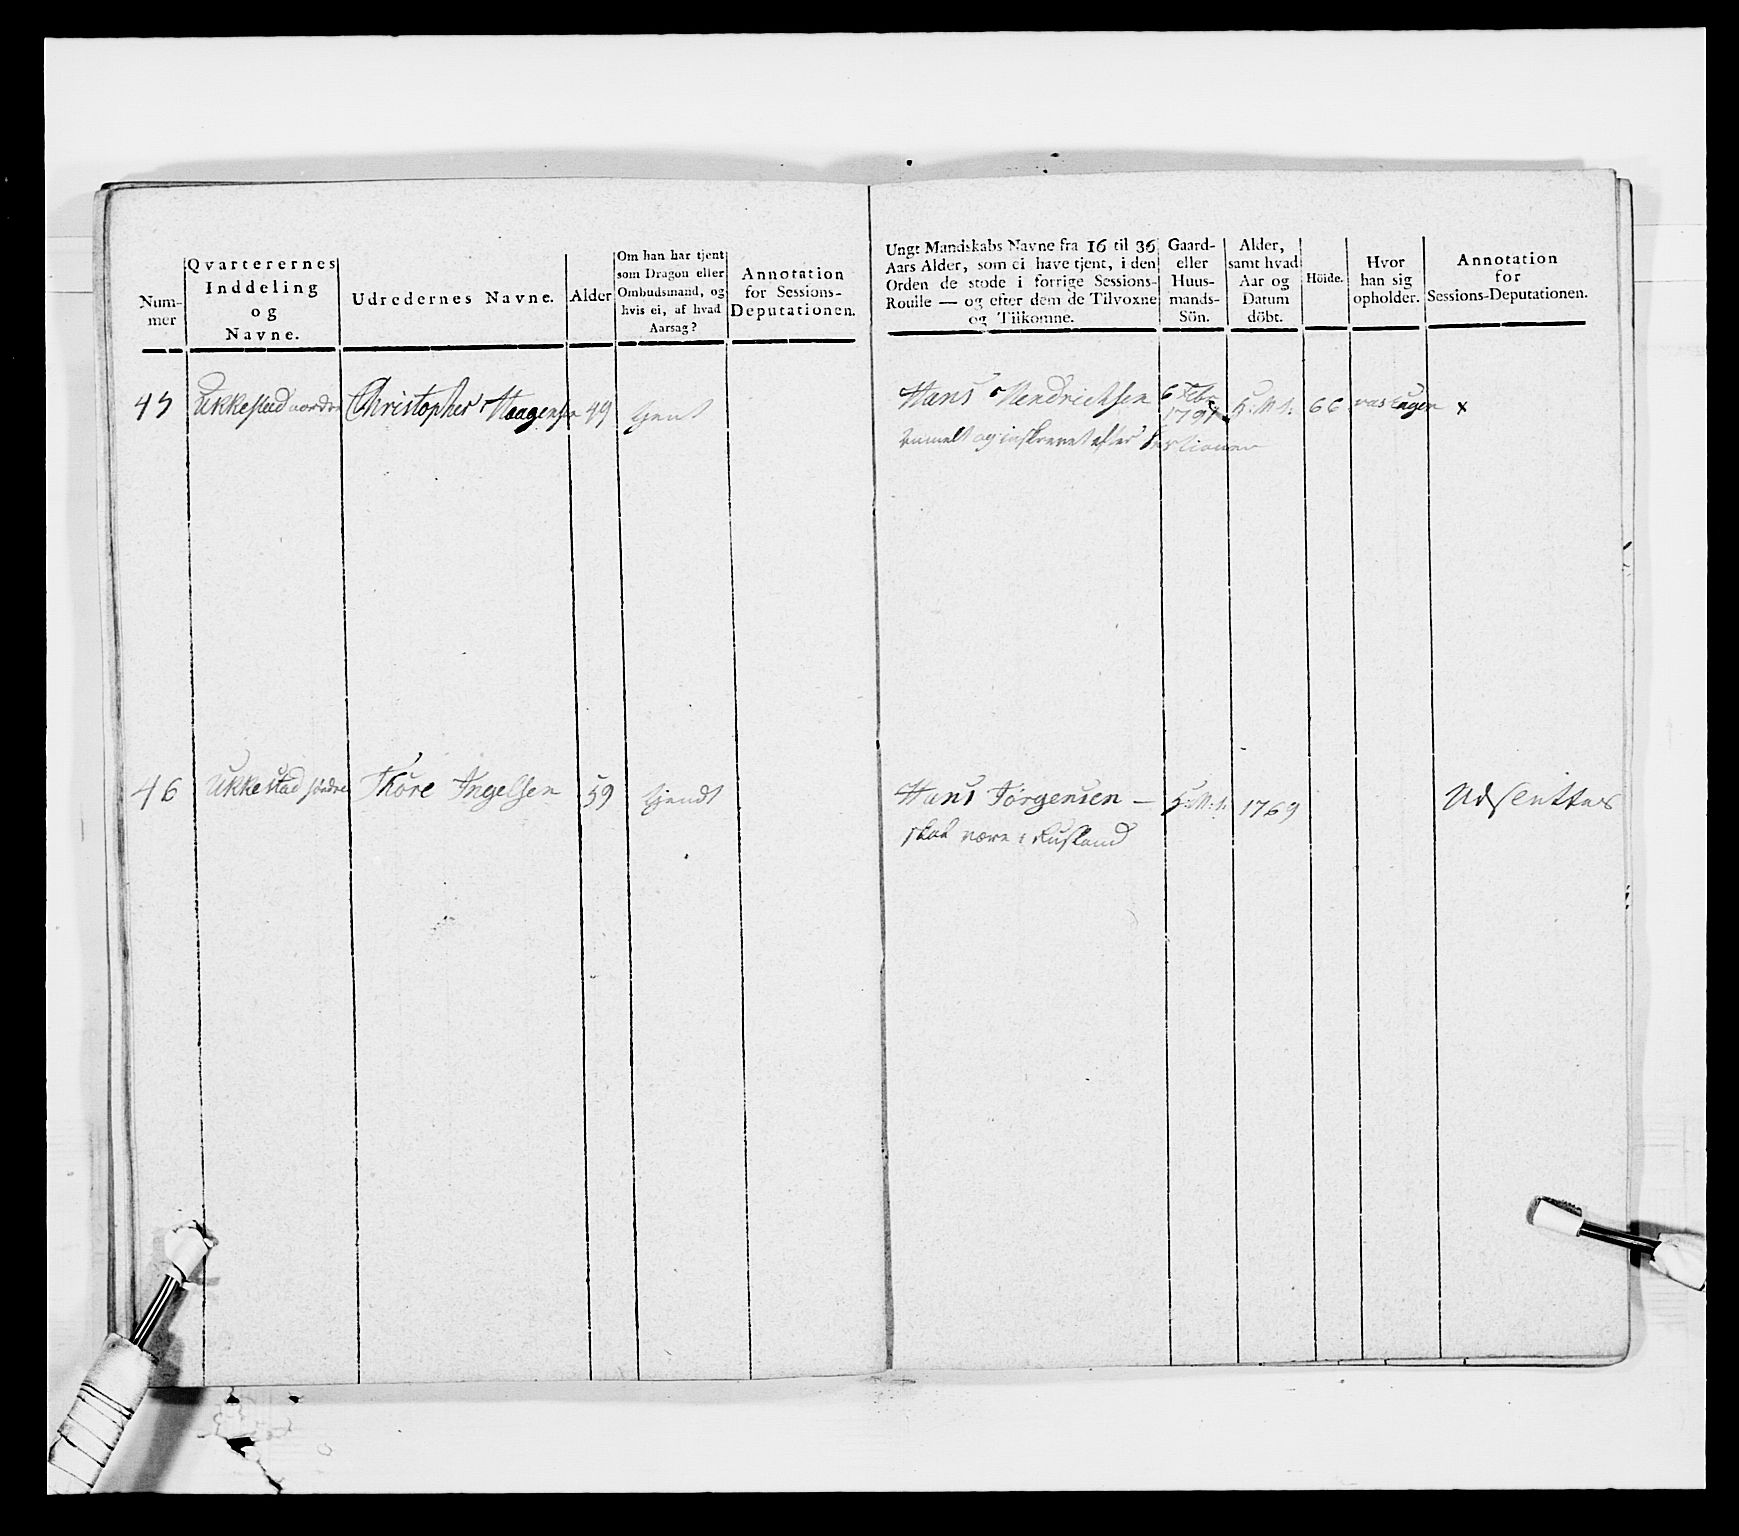 Num-
mer
Qvarterernes
Inddeling
og
Navne.
Udredernes Navne.
Alder
Om han har tjent
som Dragon eller
Ombudsmand, og
hvis ei, af hvad
Aarsag?
Annotation
for Sessions-
Deputationen.
Ungt Mandskabs Navne fra 16 til 36
Aars Alder, som ei have tjent, i den
Orden de stode i forrige Sessions-
Roulle — og efter dem de Tilvoxne
og Tilkomne.
Gaard-
eller
Huus-
mands-
Sön.
Alder,
samt hvad
Aar og
Datum
döbt.
Höide.
Hvor
han sig
opholder.
Annotation
for
Sessions-Deputationen.
45 Ukkestad nordre Christopher Haagensen 49 tjent
Hans Hendrichsen 6 Febr 1791 H:M:S. 66 x
og inskrevet efter Sessionen
46 Ukkestad söndre Thore Ingelsen 59 tjendt
Hans Jörgensen — H:M:S. 1769 Udslettes
skal være i Rusland